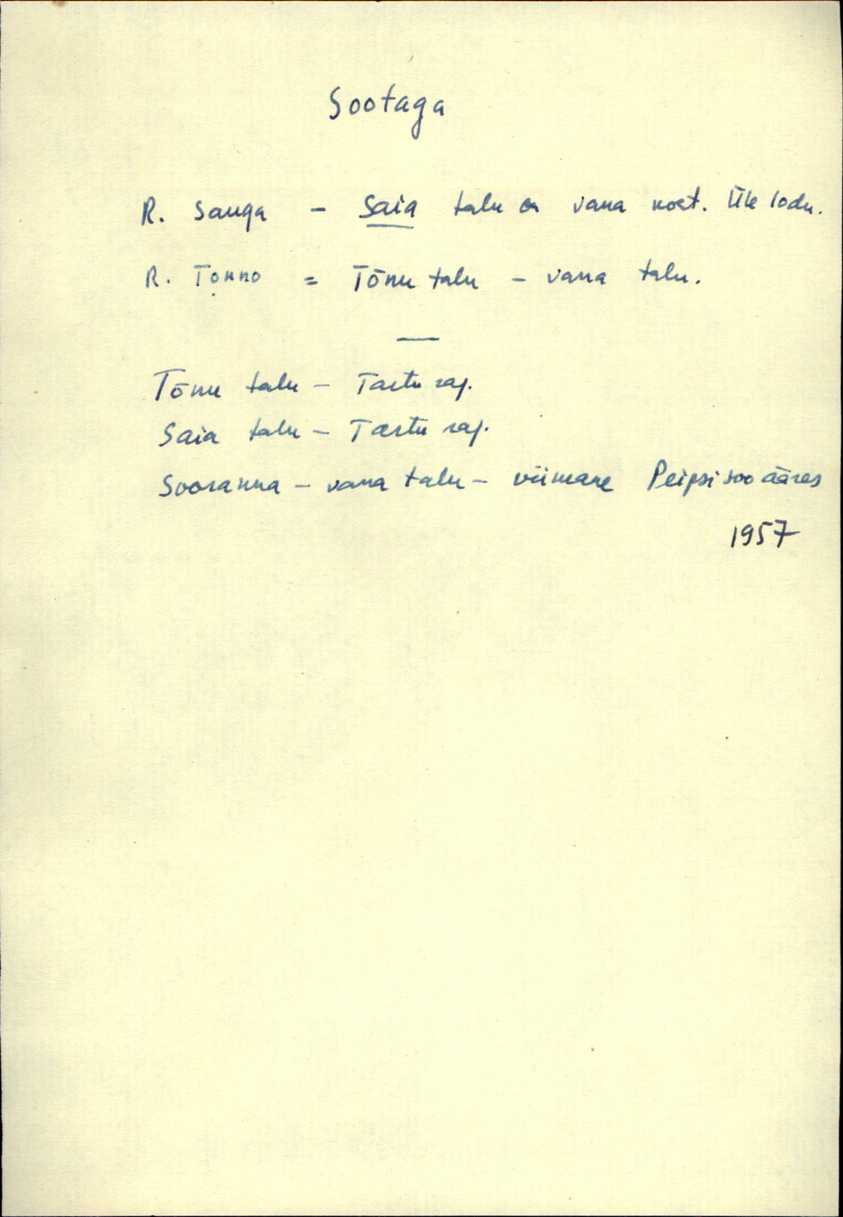 Sootaga
R. Sauga – Saia talu on vana koht. Üle lodu.
R. Tonno = Tõnu talu – vana talu.
Tõnu talu – Tartu raj.
Saia talu – Tartu raj.
Sooranna – vana talu – viimane Peipsi soo ääres
1957